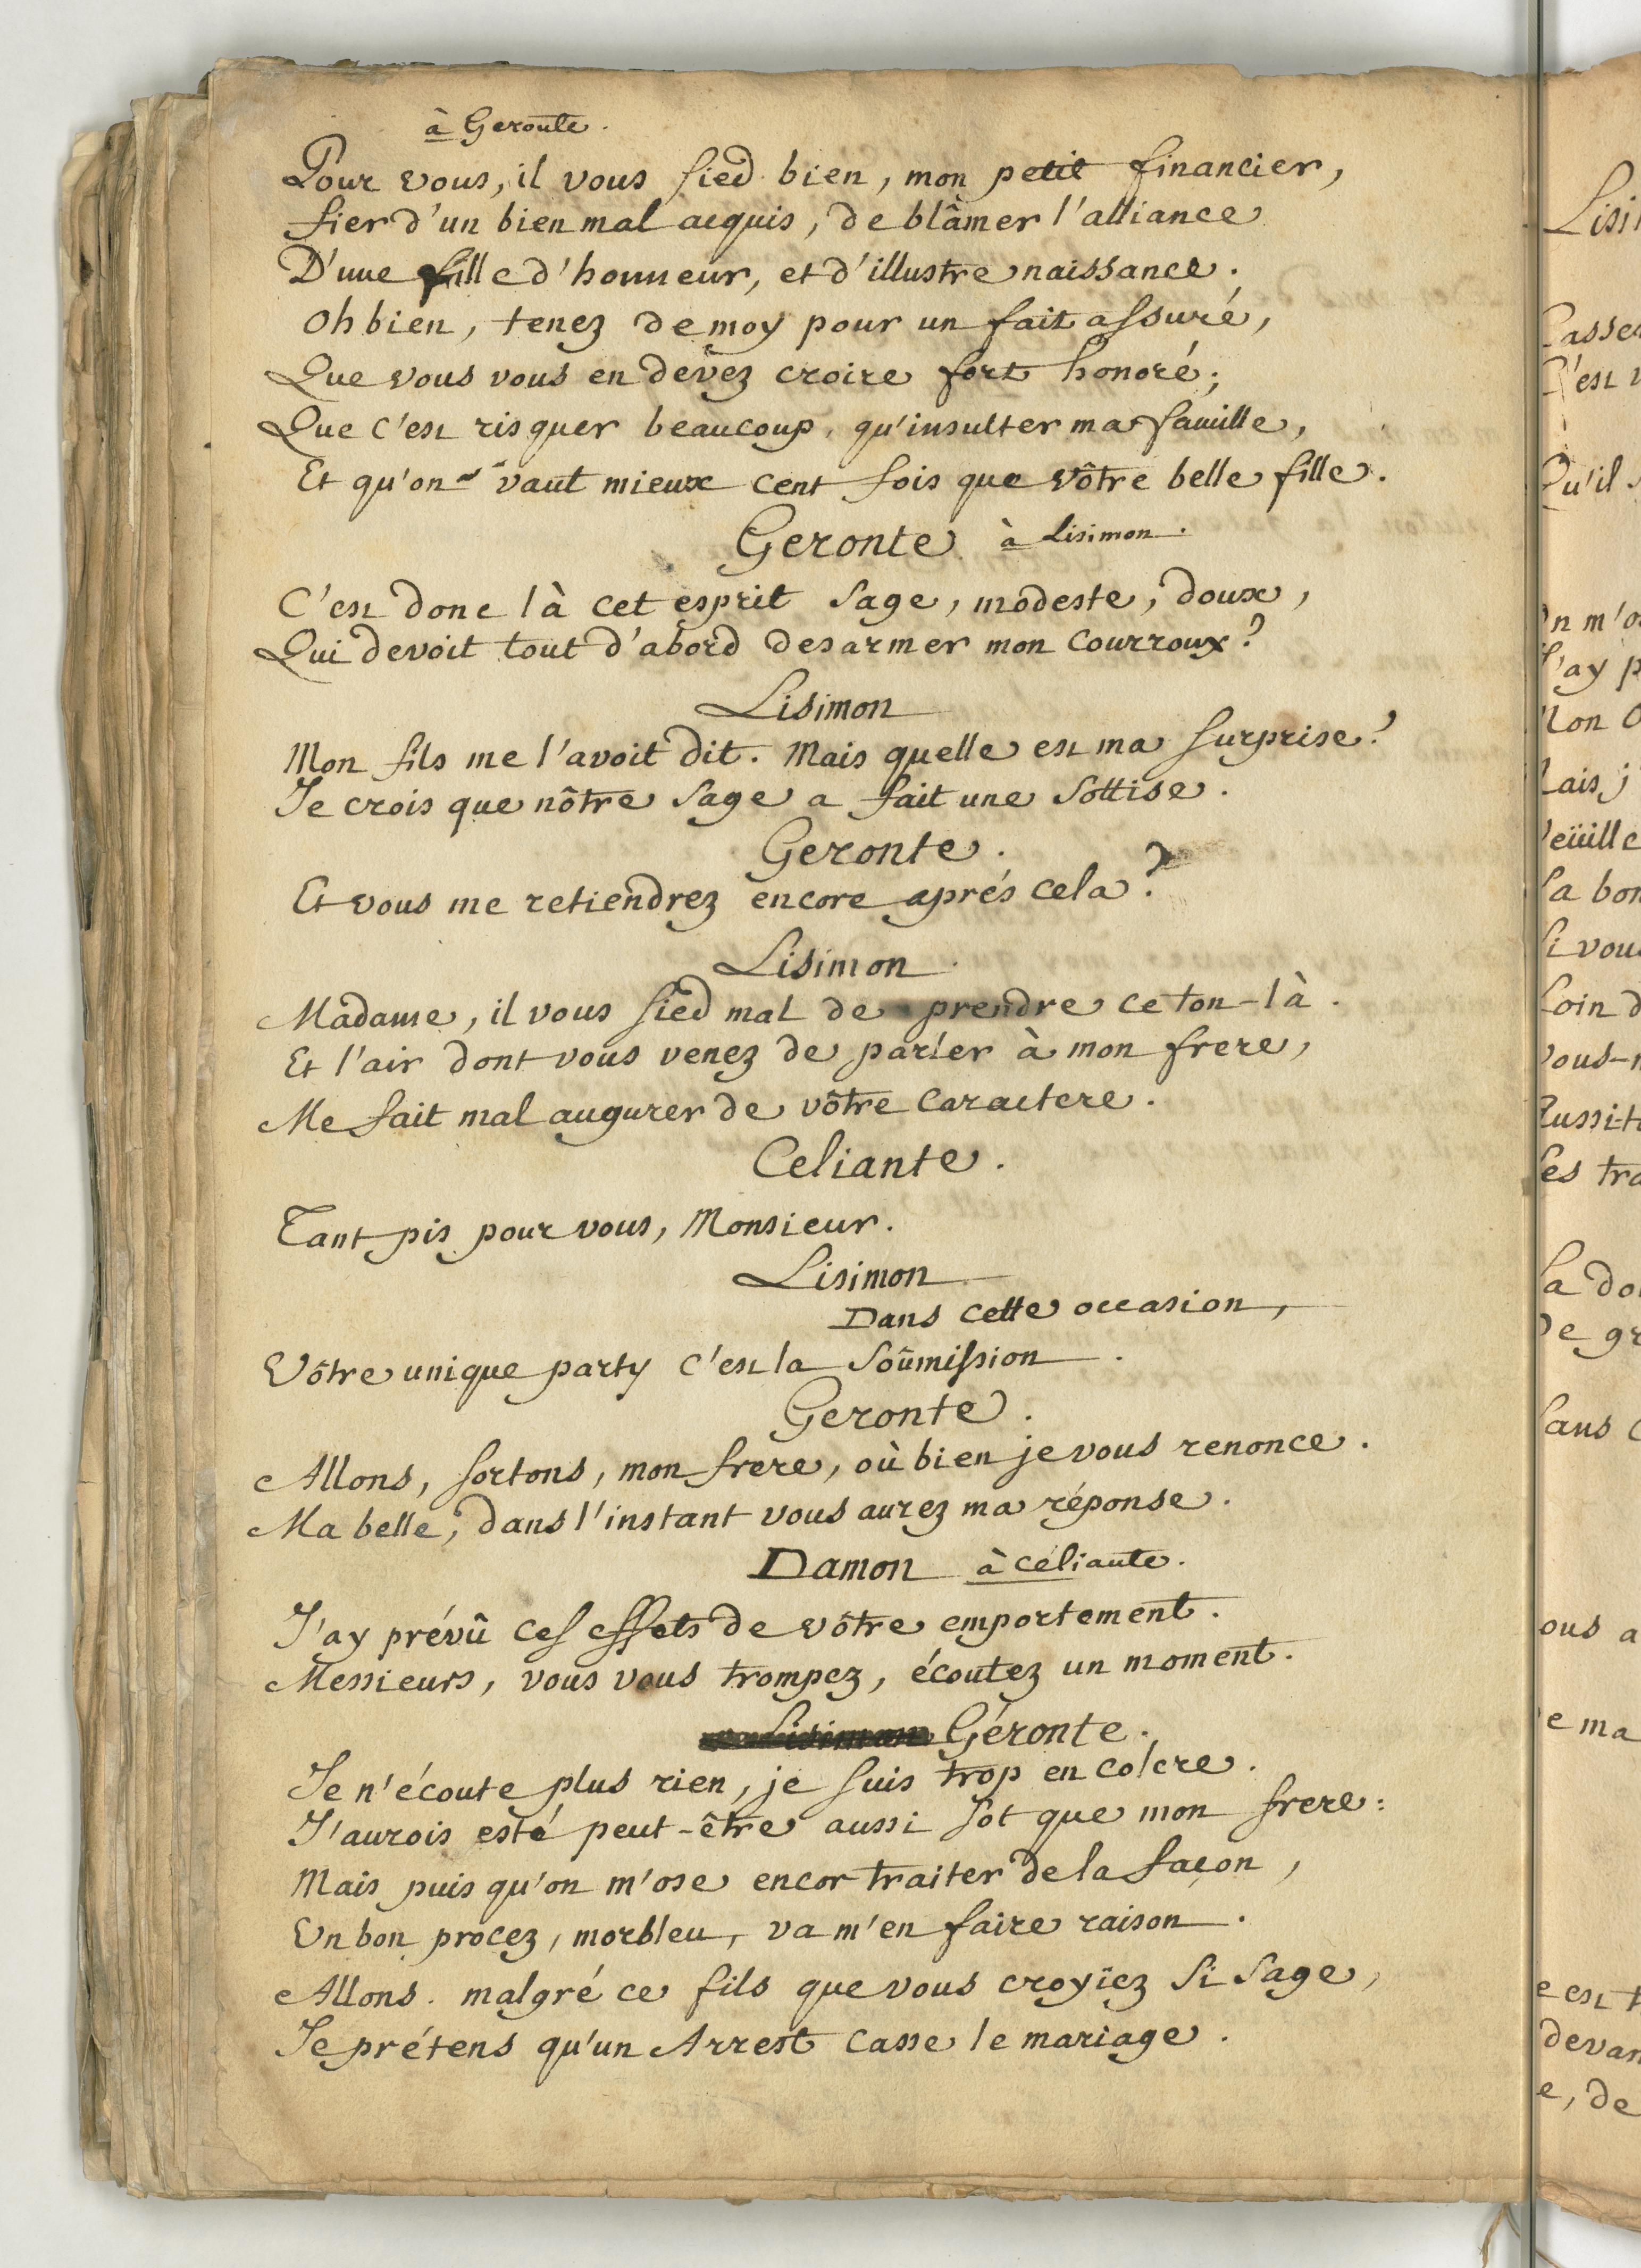 à Geronte.
Pour vous, il vous sied bien, mon petit financier,
fier d'un bien mal acquis, de blâmer l'alliance
D'une fille d'honneur, et d'illustre naissance.
Oh bien, tenez de moy pour un fait assuré,
Que vous vous en devez croire fort honoré;
Que c'est risquer beaucoup, qu'insulter ma famille,
Et qu'on vaut mieux cent fois que vôtre belle fille.
Geronte à Lisimon.
C'est donc là cet esprit sage, modeste, doux,
Qui devoit tout d'abord desarmer mon courroux?
Lisimon
Mon fils me l'avoit dit. Mais quelle est ma surprise?
Je crois que nôtre sage a fait une sottise.
Geronte.
Et vous me retiendrez encore aprés cela?
Lisimon.
Madame, il vous sied mal de prendre ce ton-là.
Et l'air dont vous venez de parler à mon frere,
Me fait mal augurer de vôtre caractere.
Celiante.
Tant pis pour vous, Monsieur.
Lisimon
Dans cette occasion,
Vôtre unique party c'est la soûmission.
Geronte.
Allons, sortons, mon frere, où bien je vous renonce.
Ma belle, dans l'instant vous aurez ma réponse.
Damon à céliante.
J'ay prévû ces effets de vôtre emportement.
Messieurs, vous vous trompez, écoutez un moment.
Lisimon Géronte.
Je n'écoute plus rien, je suis trop en colere.
J'aurois esté peut-être aussi sot que mon frere:
Mais puis qu'on m'ose encor traiter de la façon,
Un bon procez, morbleu, va m'en faire raison.
Allons. malgré ce fils que vous croyïez si sage,
Je prétens qu'un Arrest casse le mariage.